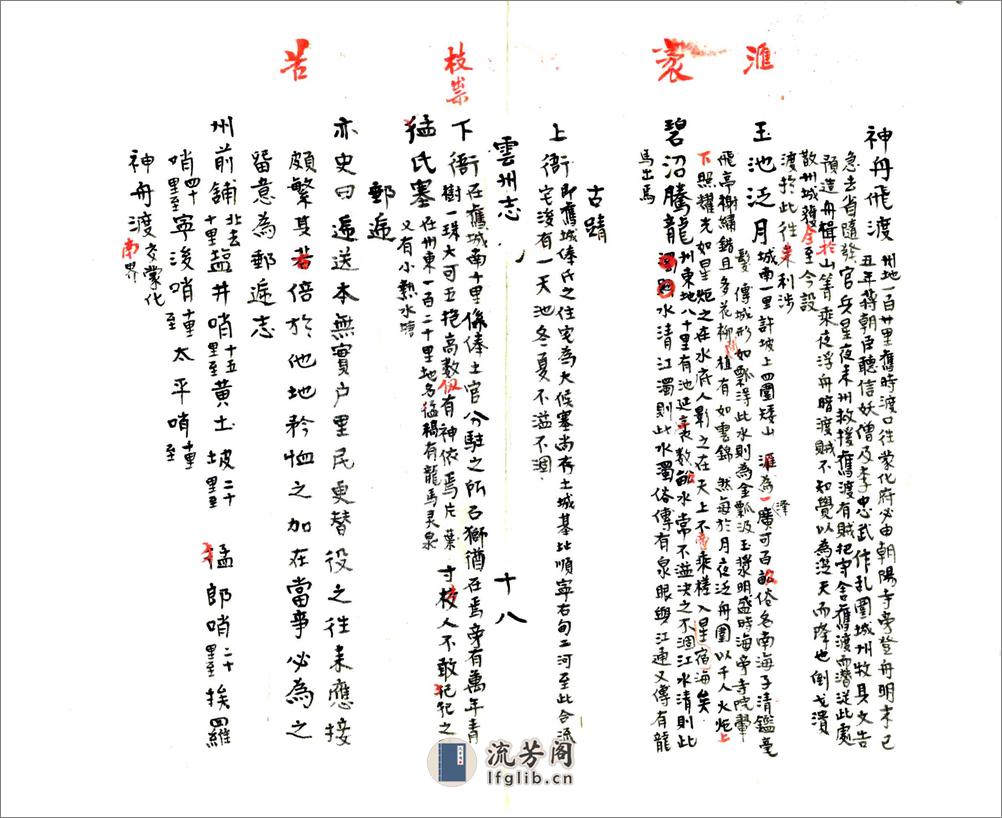 神舟飛渡 州地一百廿里舊時渡口往蒙化府必由朝陽寺旁登舟明末己
丑年蔣朝臣聽信妖僧及李忠武作乱圍城州牧具文告
急去省隨發官兵星夜来州救援舊渡有賊把守舍舊渡而潛従此處
預造舟楫於山箐乘夜浮舟暗渡賊不知覺以為從天而降也倒戈潰
散州城獲全至今設
渡於此往来利涉
玉池泛月 城南一里許坡上四圍矮山滙為一澤廣可百畝俗名南海子清鑑毫
髮傳城形如瓢得此水則為金瓢汲玉漿明盛時海旁寺院
飛亭榭繡錯且多花柳間植有如雲錦然每於月夜泛舟圍以千人火炬上
下照耀光如星炬之在水府人影之在天上不啻乘槎入星宿海矣
碧沼騰龍 州東地八十里有池延袤数畝水常不溢決之不涸江水清則此
水清江濁則此水濁俗傳有泉眼與江通又傳有龍
馬出焉
古蹟
上衙 即舊城俸氏之住宅為大侯寨尚存土城基址順寧右甸二河至此合流
宅後有一天池冬夏不溢不涸
雲州志
十八
下衙 在舊城南十里係俸土官分駐之所石獅猶在焉旁有萬年青
樹一珠大可五抱高数仭有神依焉片葉寸枝人不敢犯犯之
猛氏寨 在州東一百二十里地名猛稿有龍馬灵泉
又有小熱水塘
郵遞
亦史曰遞送本無實户里民更替役之往来應接
頗繁其若倍於他地矜恤之加在當事必為之
留意為郵遞志
州前舖 北去十里塩井哨十五里至黄土坡二十里至猛郎哨二十里至挨羅
哨四十里至寧浚哨十里至太平哨十里至
神舟渡交蒙化南界
滙
袤
枝祟
苦
流芳阁
lfglib.cn